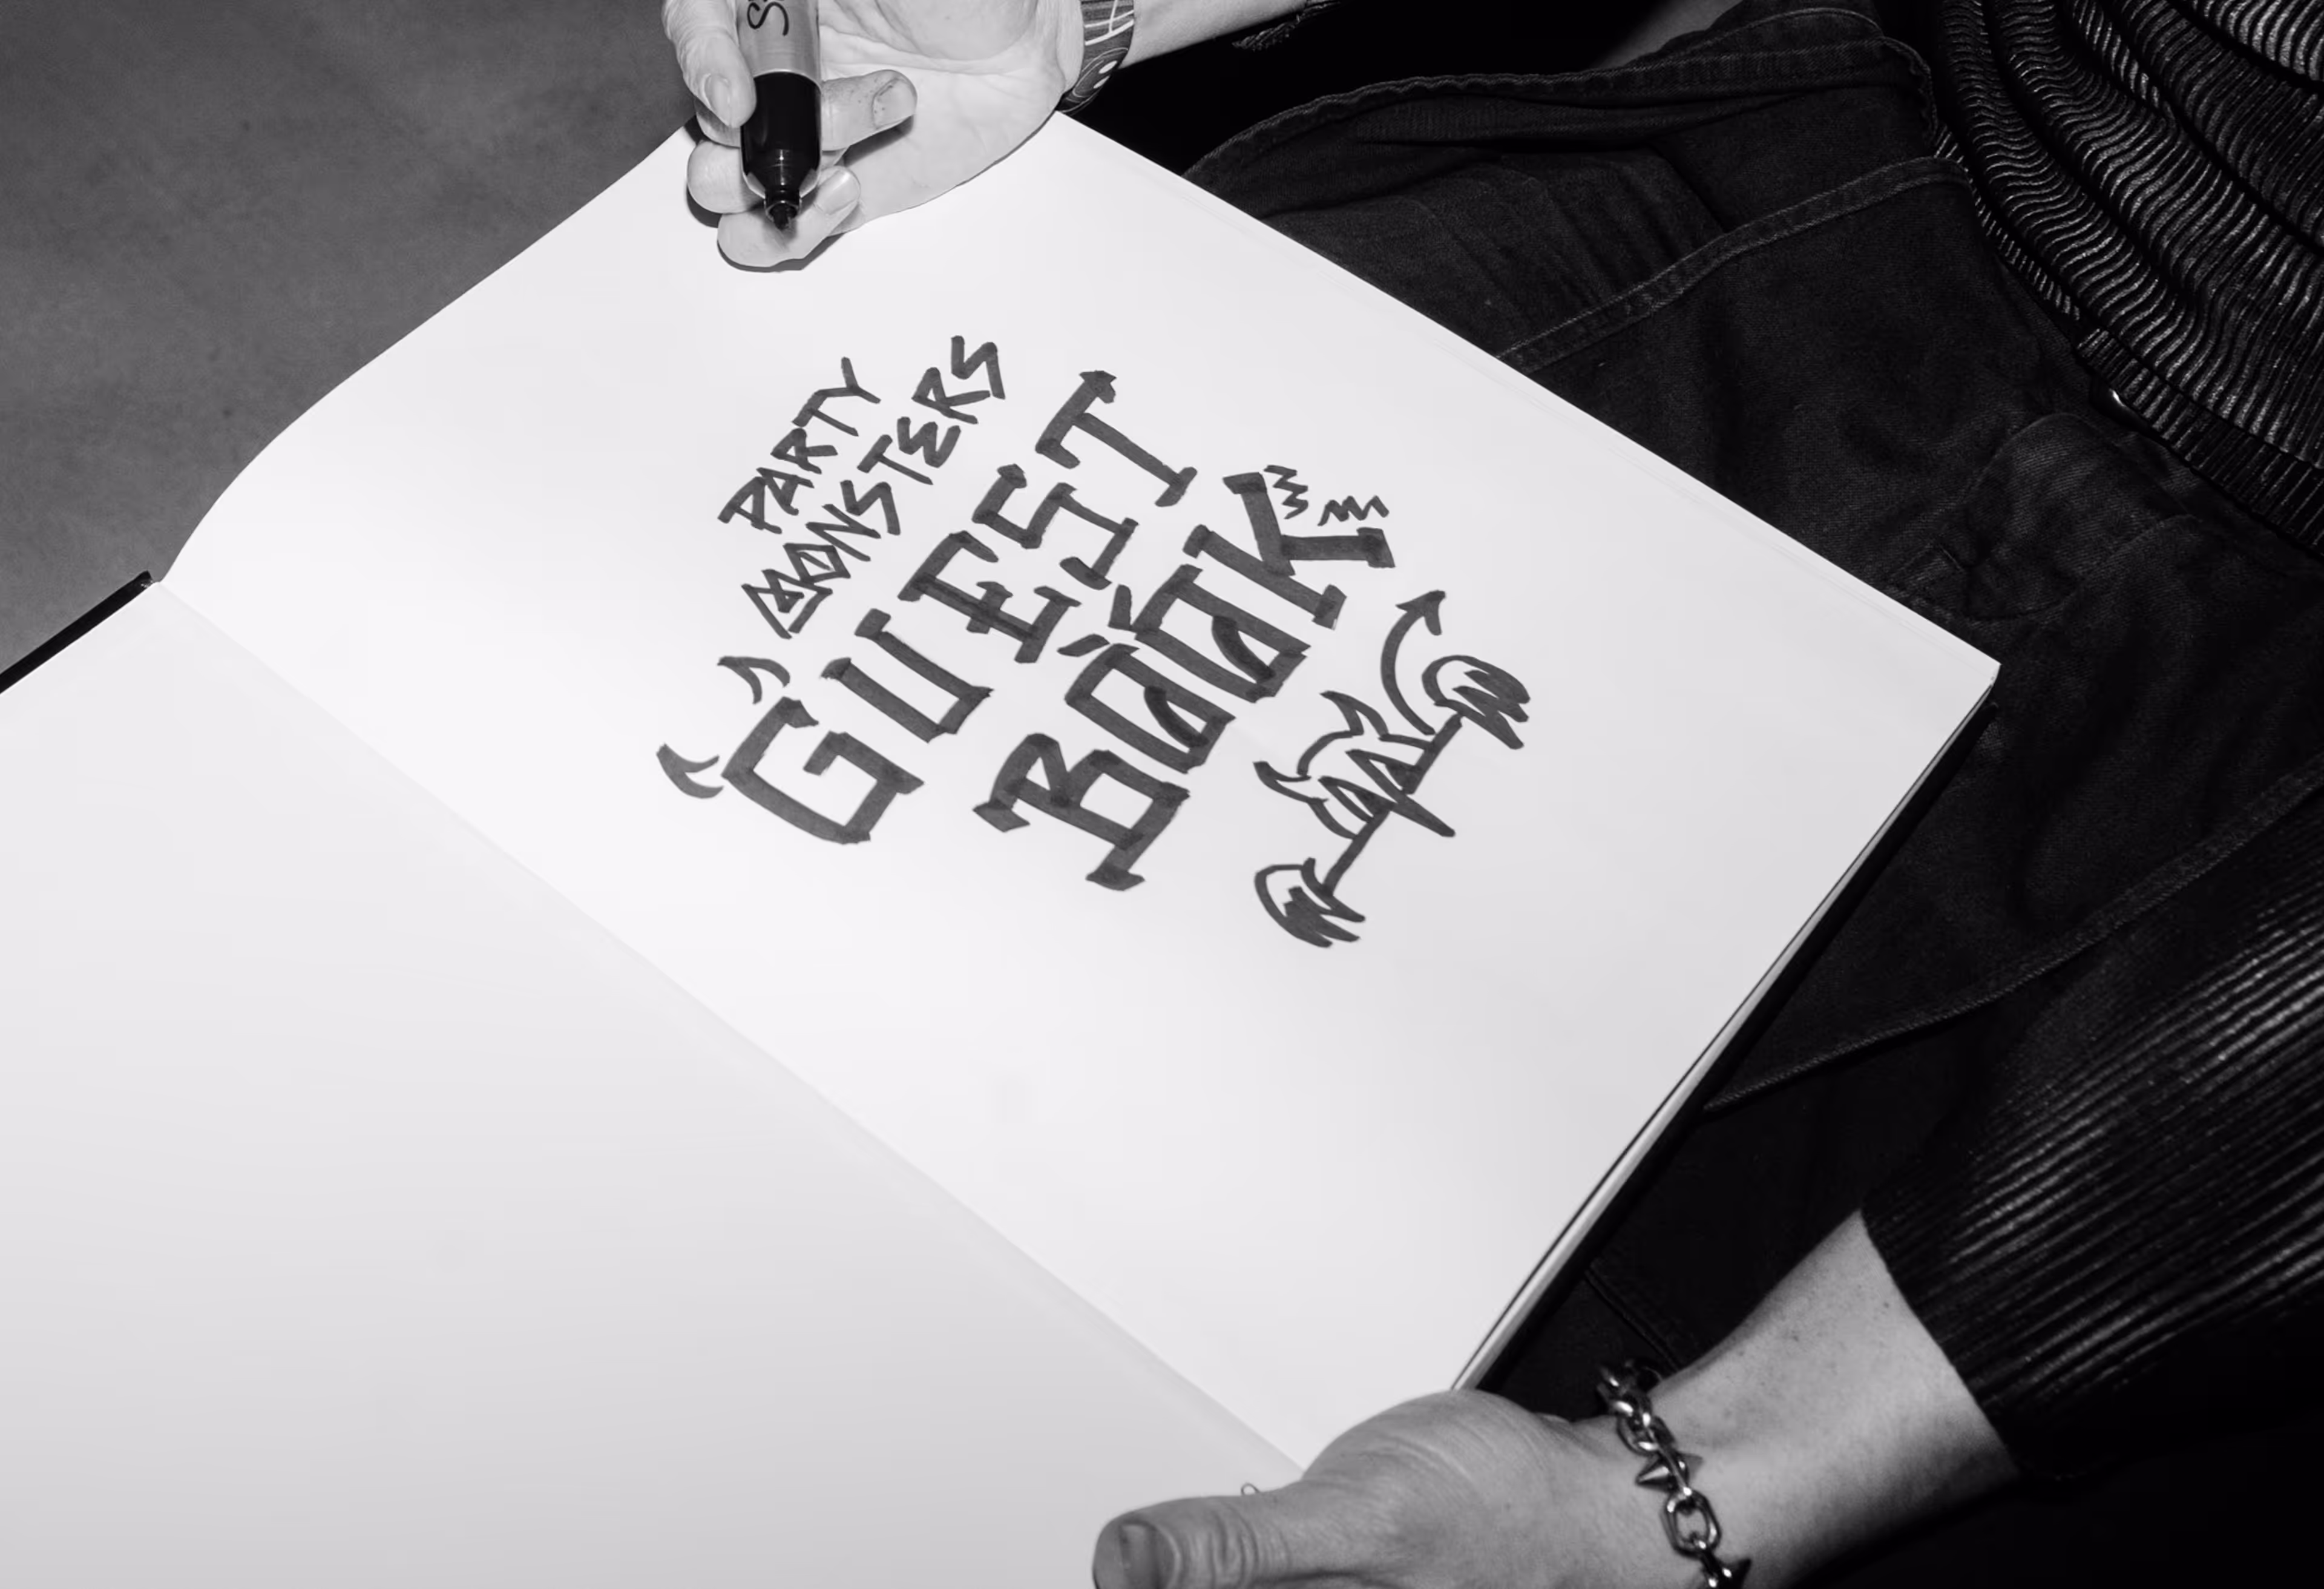 PARTY
MONSTERS
GUEST
BOOK